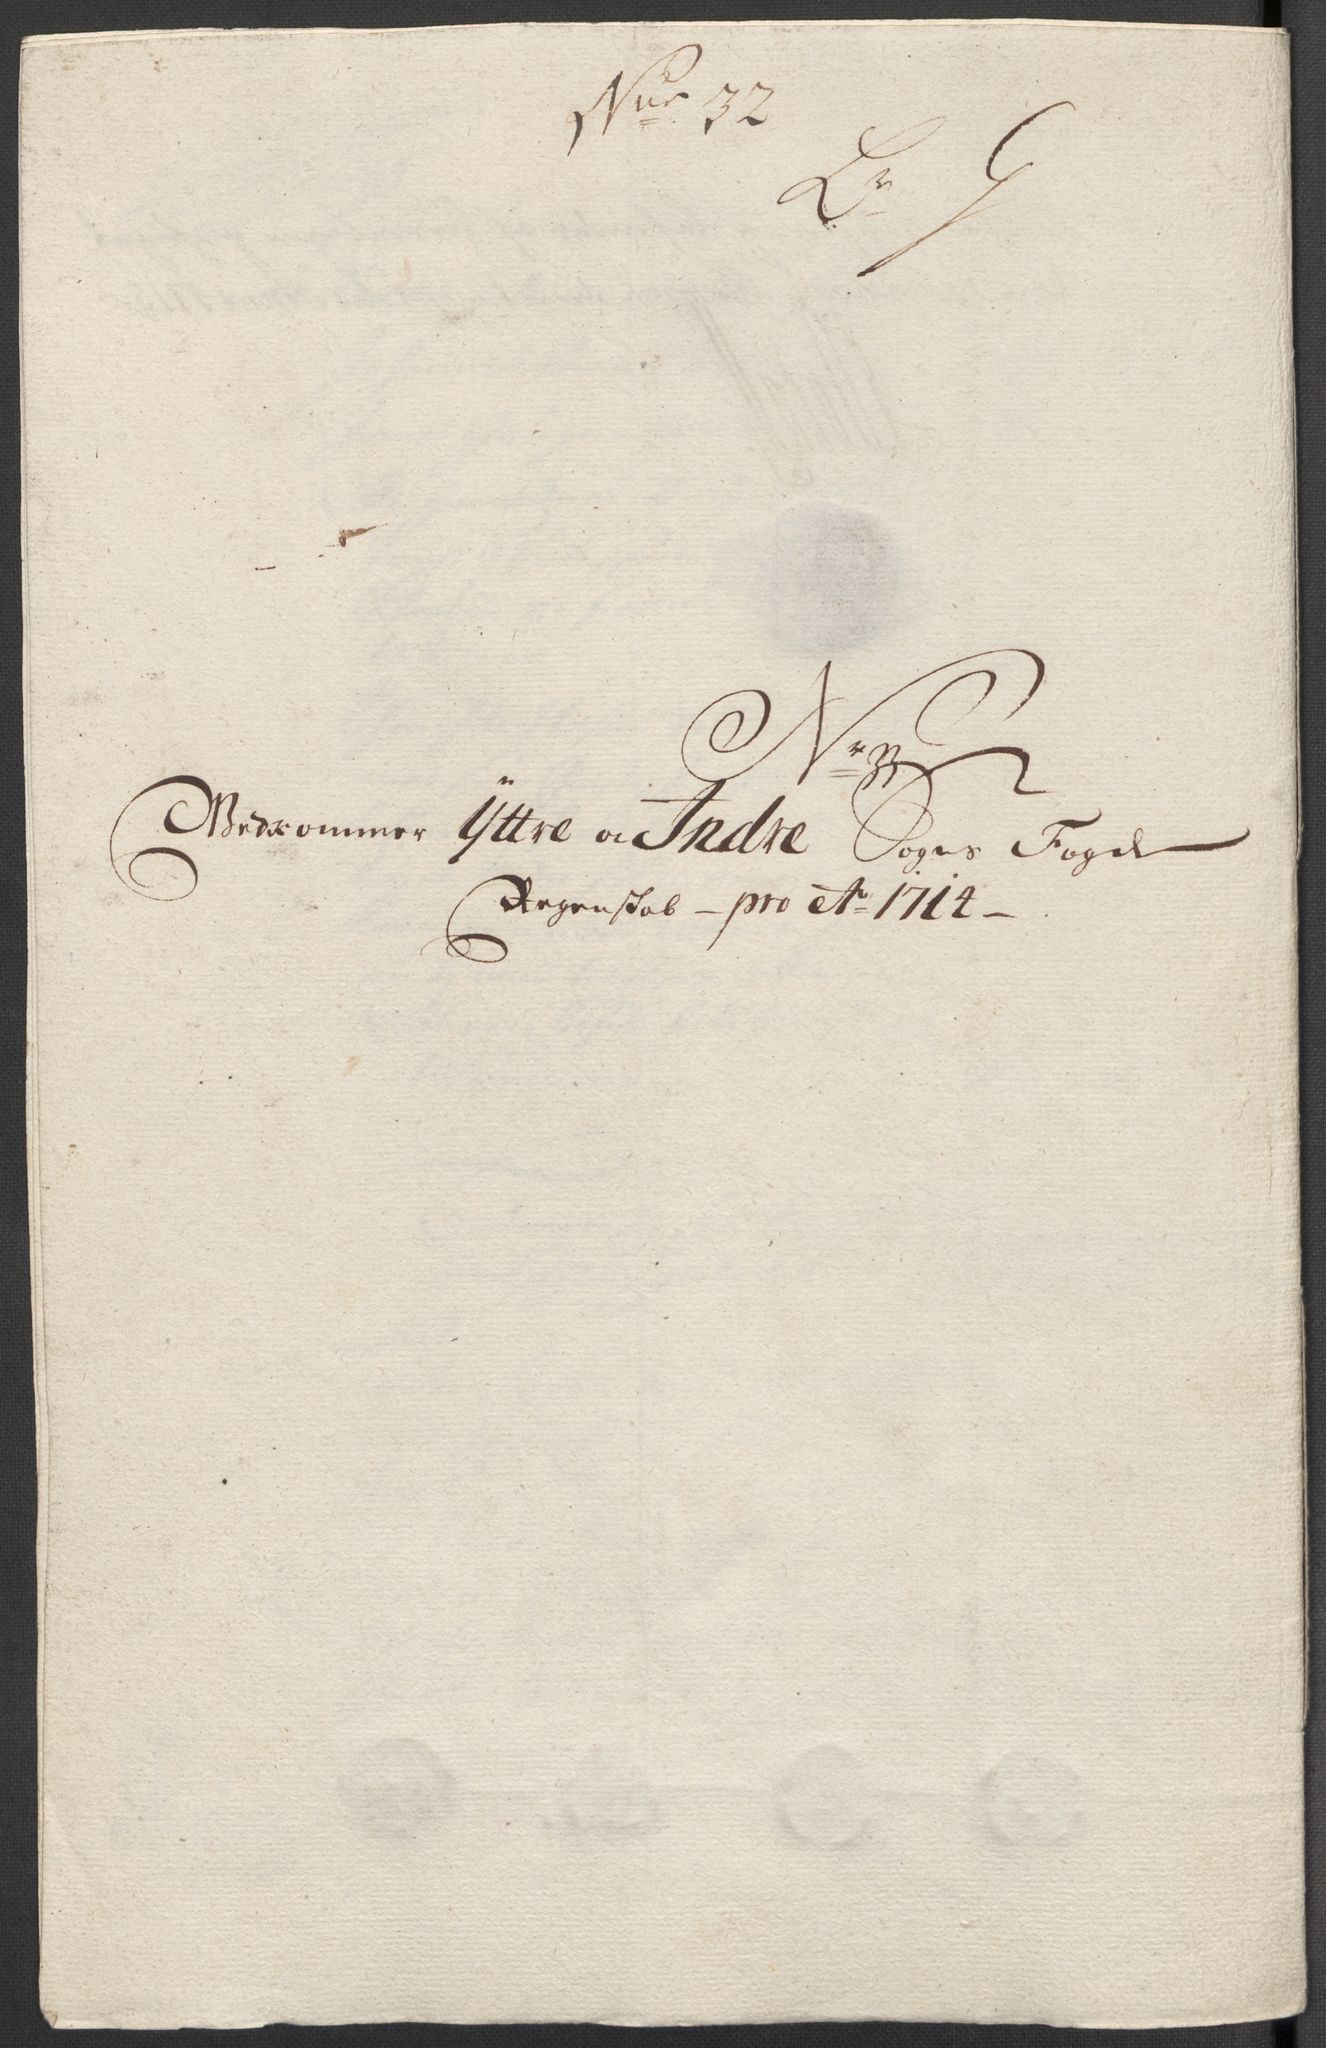 No 32
Lr G
Nr 32
Vedkommer Yttre oc Indre Sogns Fogd
Regenskab - pro Ao 1714 -